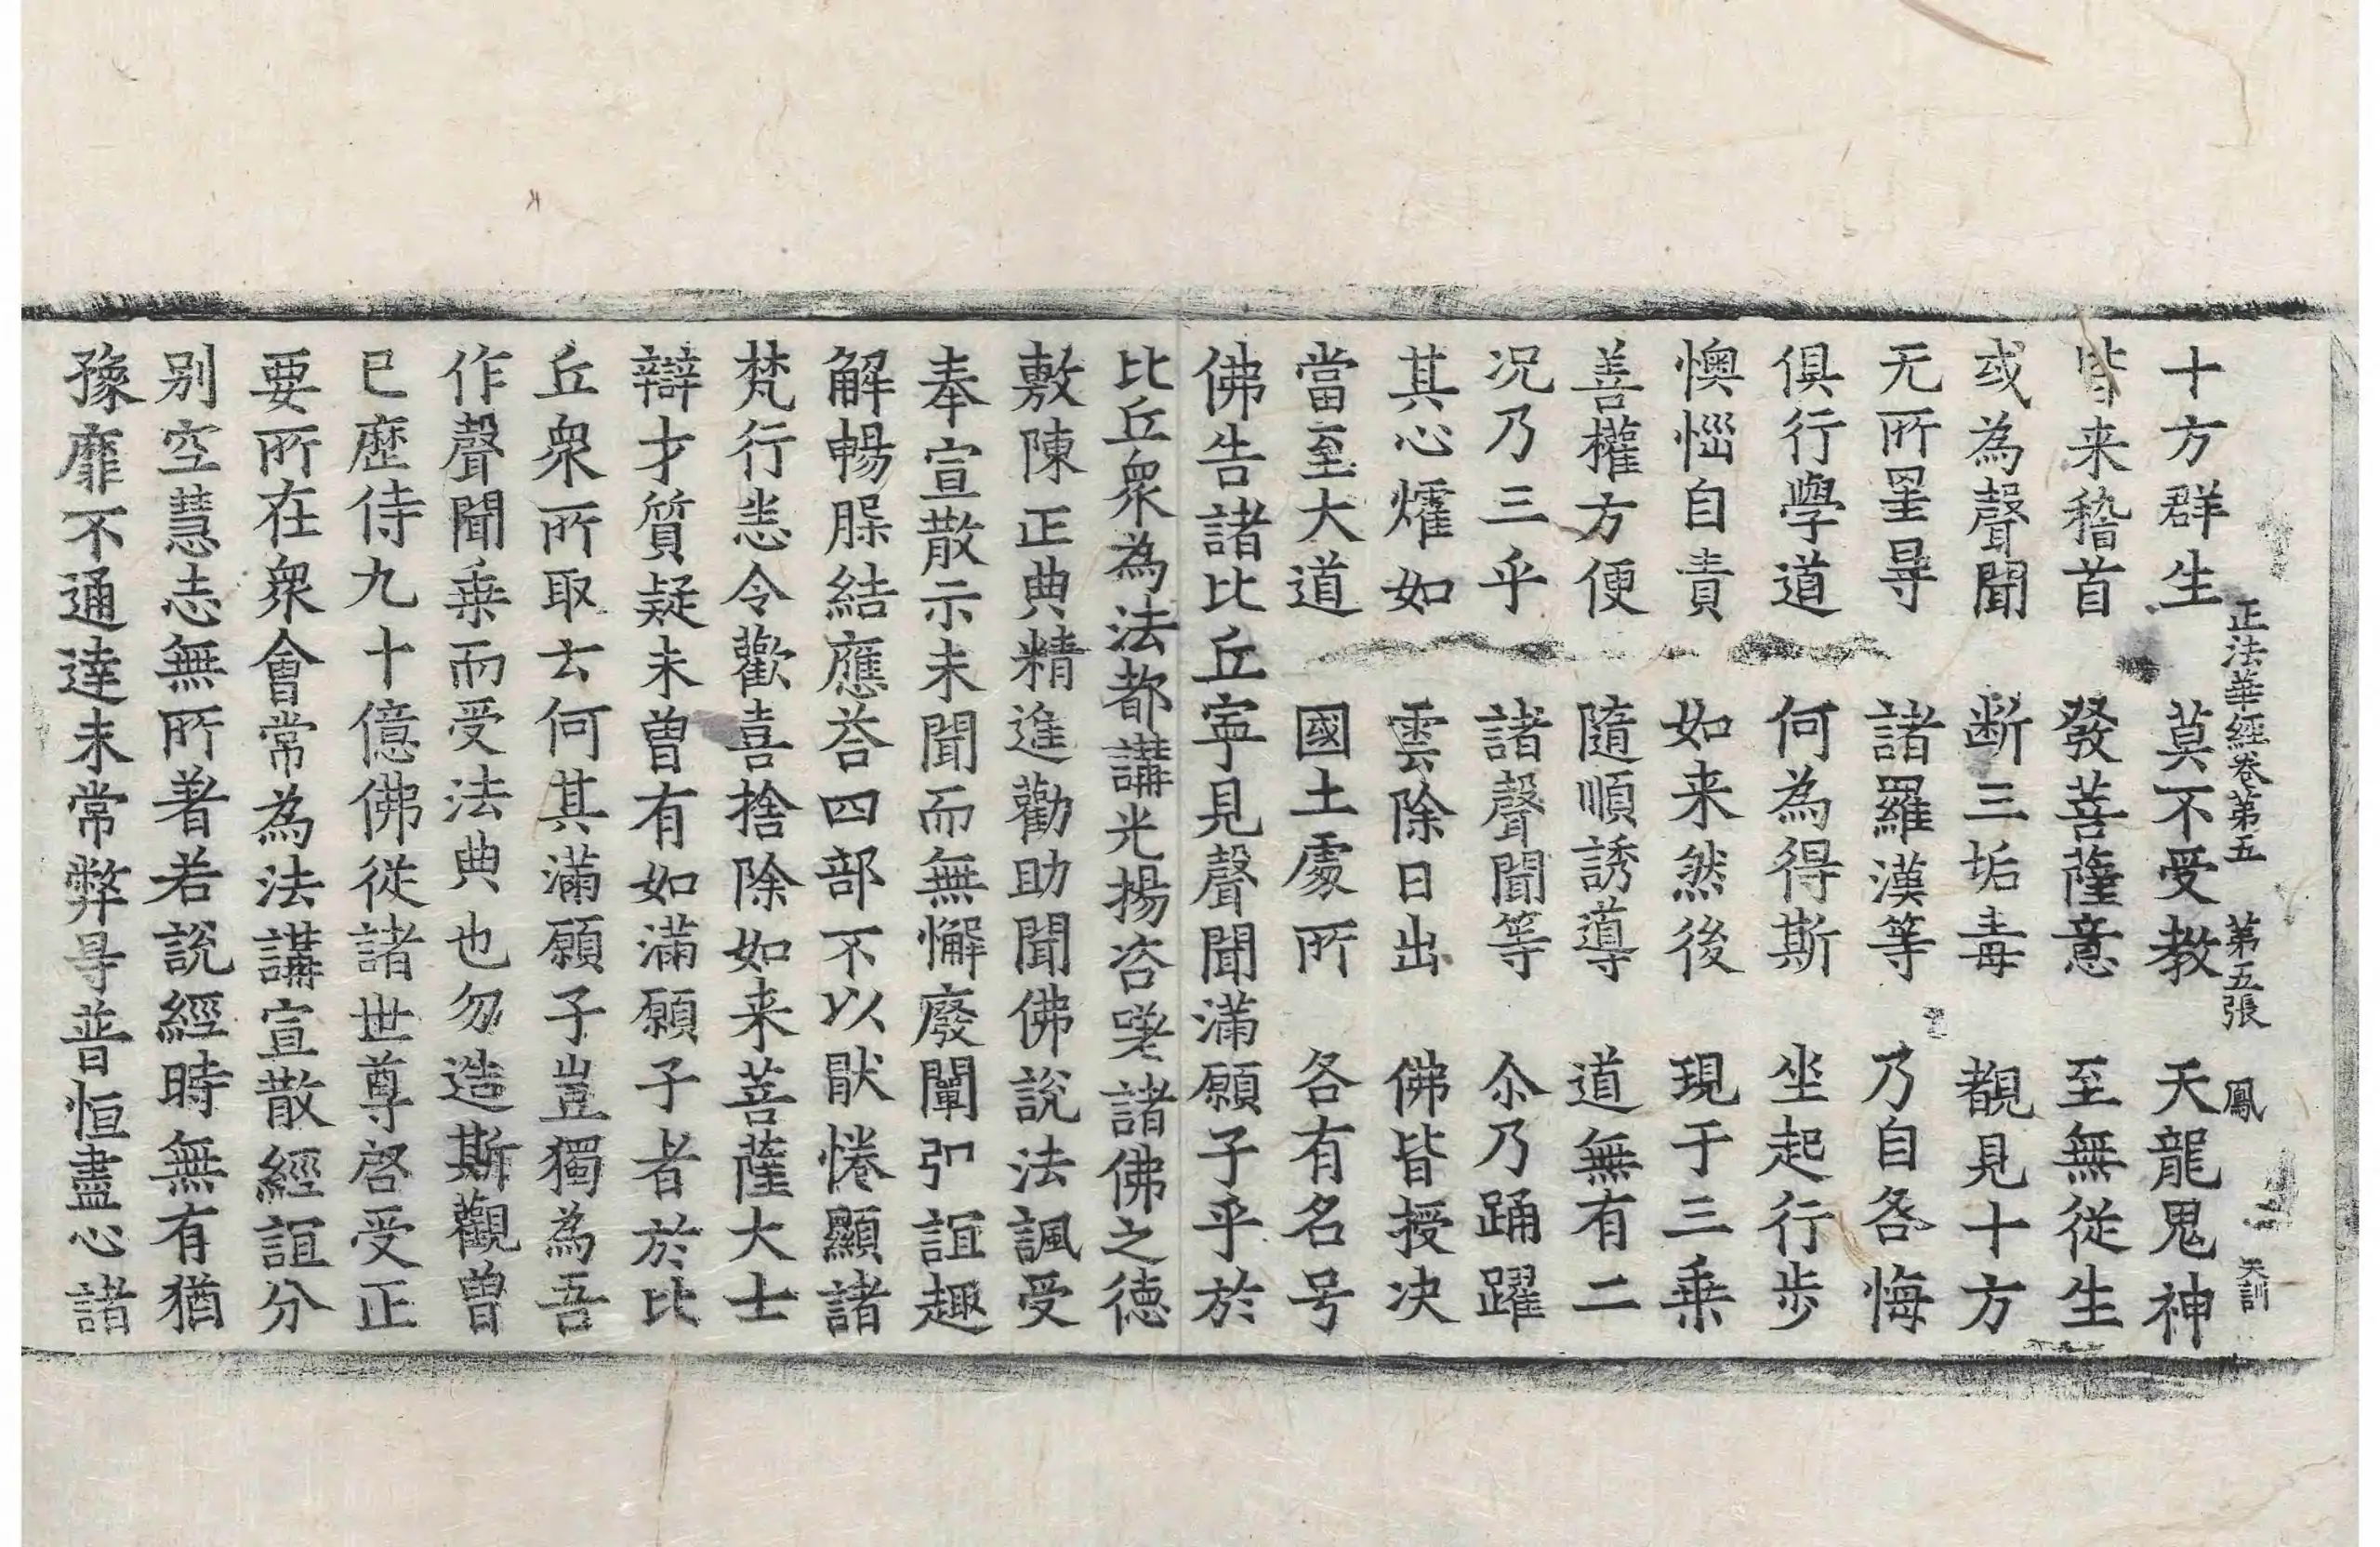 正法華經卷第五 第五張 鳳 天訓
十方群生 莫不受教 天龍鬼神
皆来稽首 發菩薩意 至無從生
或為聲聞 断三垢毒 覩見十方
无所罣㝵 諸羅漢等 乃自咎悔
俱行學道 何為得斯 坐起行步
懊惱自責 如来然後 現于三乗
善權方便 隨順誘導 道無有二
况乃三乎 諸聲聞等 尒乃踊躍
其心燿如 雲除日出 佛皆授决
當至大道 國土處所 各有名号
佛告諸比丘寧見聲聞滿願子乎於
比丘衆為法都講光揚咨嗟諸佛之德
敷陳正典精進勸助聞佛說法諷受
奉宣散示未聞而無懈廢闡弘誼趣
解暢䐉結應荅四部不以猒惓顯諸
梵行恙令歡喜捨除如来菩薩大士
辯才質疑未曽有如滿願子者於比
丘衆所取云何其滿願子豈獨為吾
作聲聞乗而受法典也勿造斯觀曽
已歷侍九十億佛從諸世尊啓受正
要所在衆會常為法講宣散經誼分
别空慧志無所著若說經時無有猶
豫靡不通達未常弊㝵普恒盡心諸